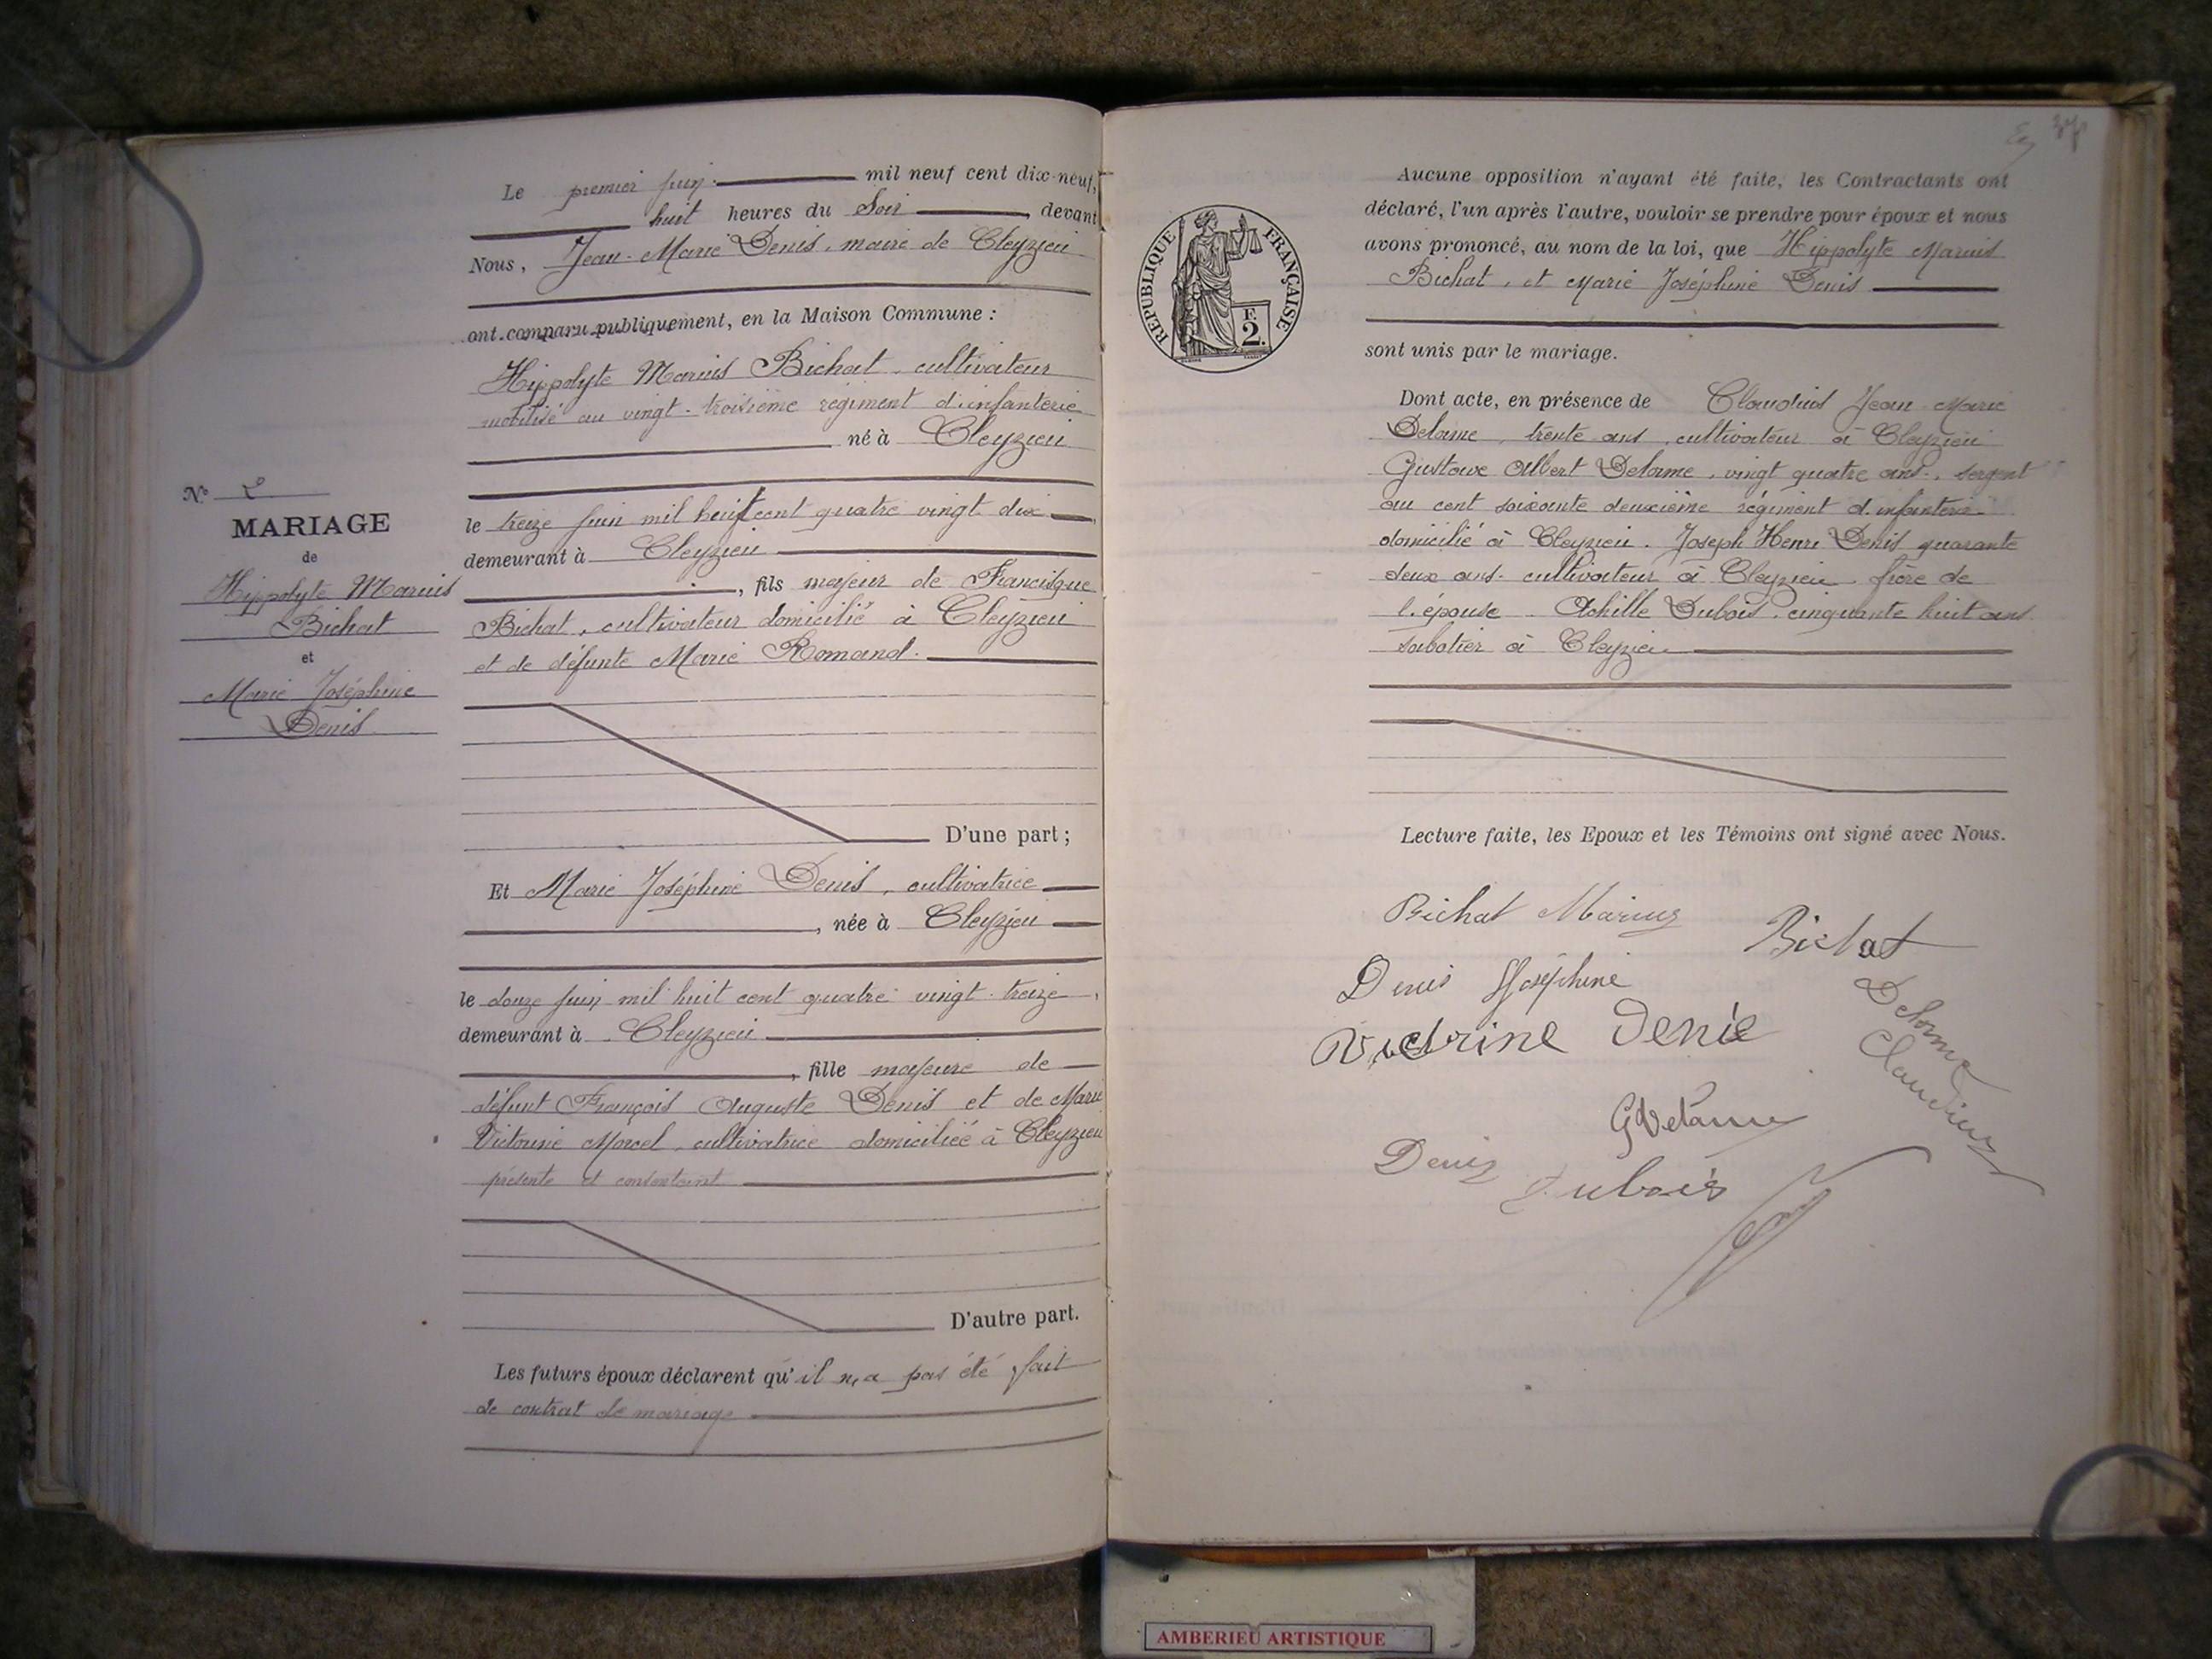 Le premier juin mil neuf cent dix-neuf,
huit heures du Soir, devant
Nous, Jean-Marie Denis, maire de Cleyzieu
ont comparu publiquement, en la Maison Commune :
Hippolyte Marius Bichat, cultivateur
mobilisé au vingt-troisième régiment d'infanterie
né à Cleyzieu
le treize juin mil huit cent quatre vingt dix,
demeurant à Cleyzieu
, fils majeur de Francisque
Bichat, cultivateur domicilié à Cleyzieu
et de défunte Marie Romand.
D'une part ;
Et Marie Joséphine Denis, cultivatrice
, née à Cleyzieu
le douze juin mil huit cent quatre vingt treize,
demeurant à Cleyzieu
, fille majeure de
défunt François Auguste Denis et de Marie
Victorine Morcel, cultivatrice domiciliée à Cleyzieu
présente et consentant
D'autre part.
Les futurs époux déclarent qu'il n'a pas été fait
de contrat de mariage
N° 2
MARIAGE
de
Hippolyte Marius
Bichat
et
Marie Joséphine
Denis
37
RÉPUBLIQUE FRANÇAISE
F.
2.
Aucune opposition n'ayant été faite, les Contractants ont
déclaré, l'un après l'autre, vouloir se prendre pour époux et nous
avons prononcé, au nom de la loi, que Hippolyte Marius
Bichat, et Marie Joséphine Denis
sont unis par le mariage.
Dont acte, en présence de Claudius Jean Marie
Delorme, trente ans, cultivateur à Cleyzieu
Gustave Albert Delorme, vingt quatre ans, sergent
au cent soixante deuxième régiment d'infanterie
domicilié à Cleyzieu. Joseph Henri Denis quarante
deux ans. cultivateur à Cleyzieu frère de
l'épouse. Achille Dubois, cinquante huit ans
sabotier à Cleyzieu
Lecture faite, les Epoux et les Témoins ont signé avec Nous.
Bichat Marius
Bichat
Denis Joséphine
Delorme
Claudius
Victorine Denis
G Delorme
Denis
Dubois
AMBERIEU ARTISTIQUE